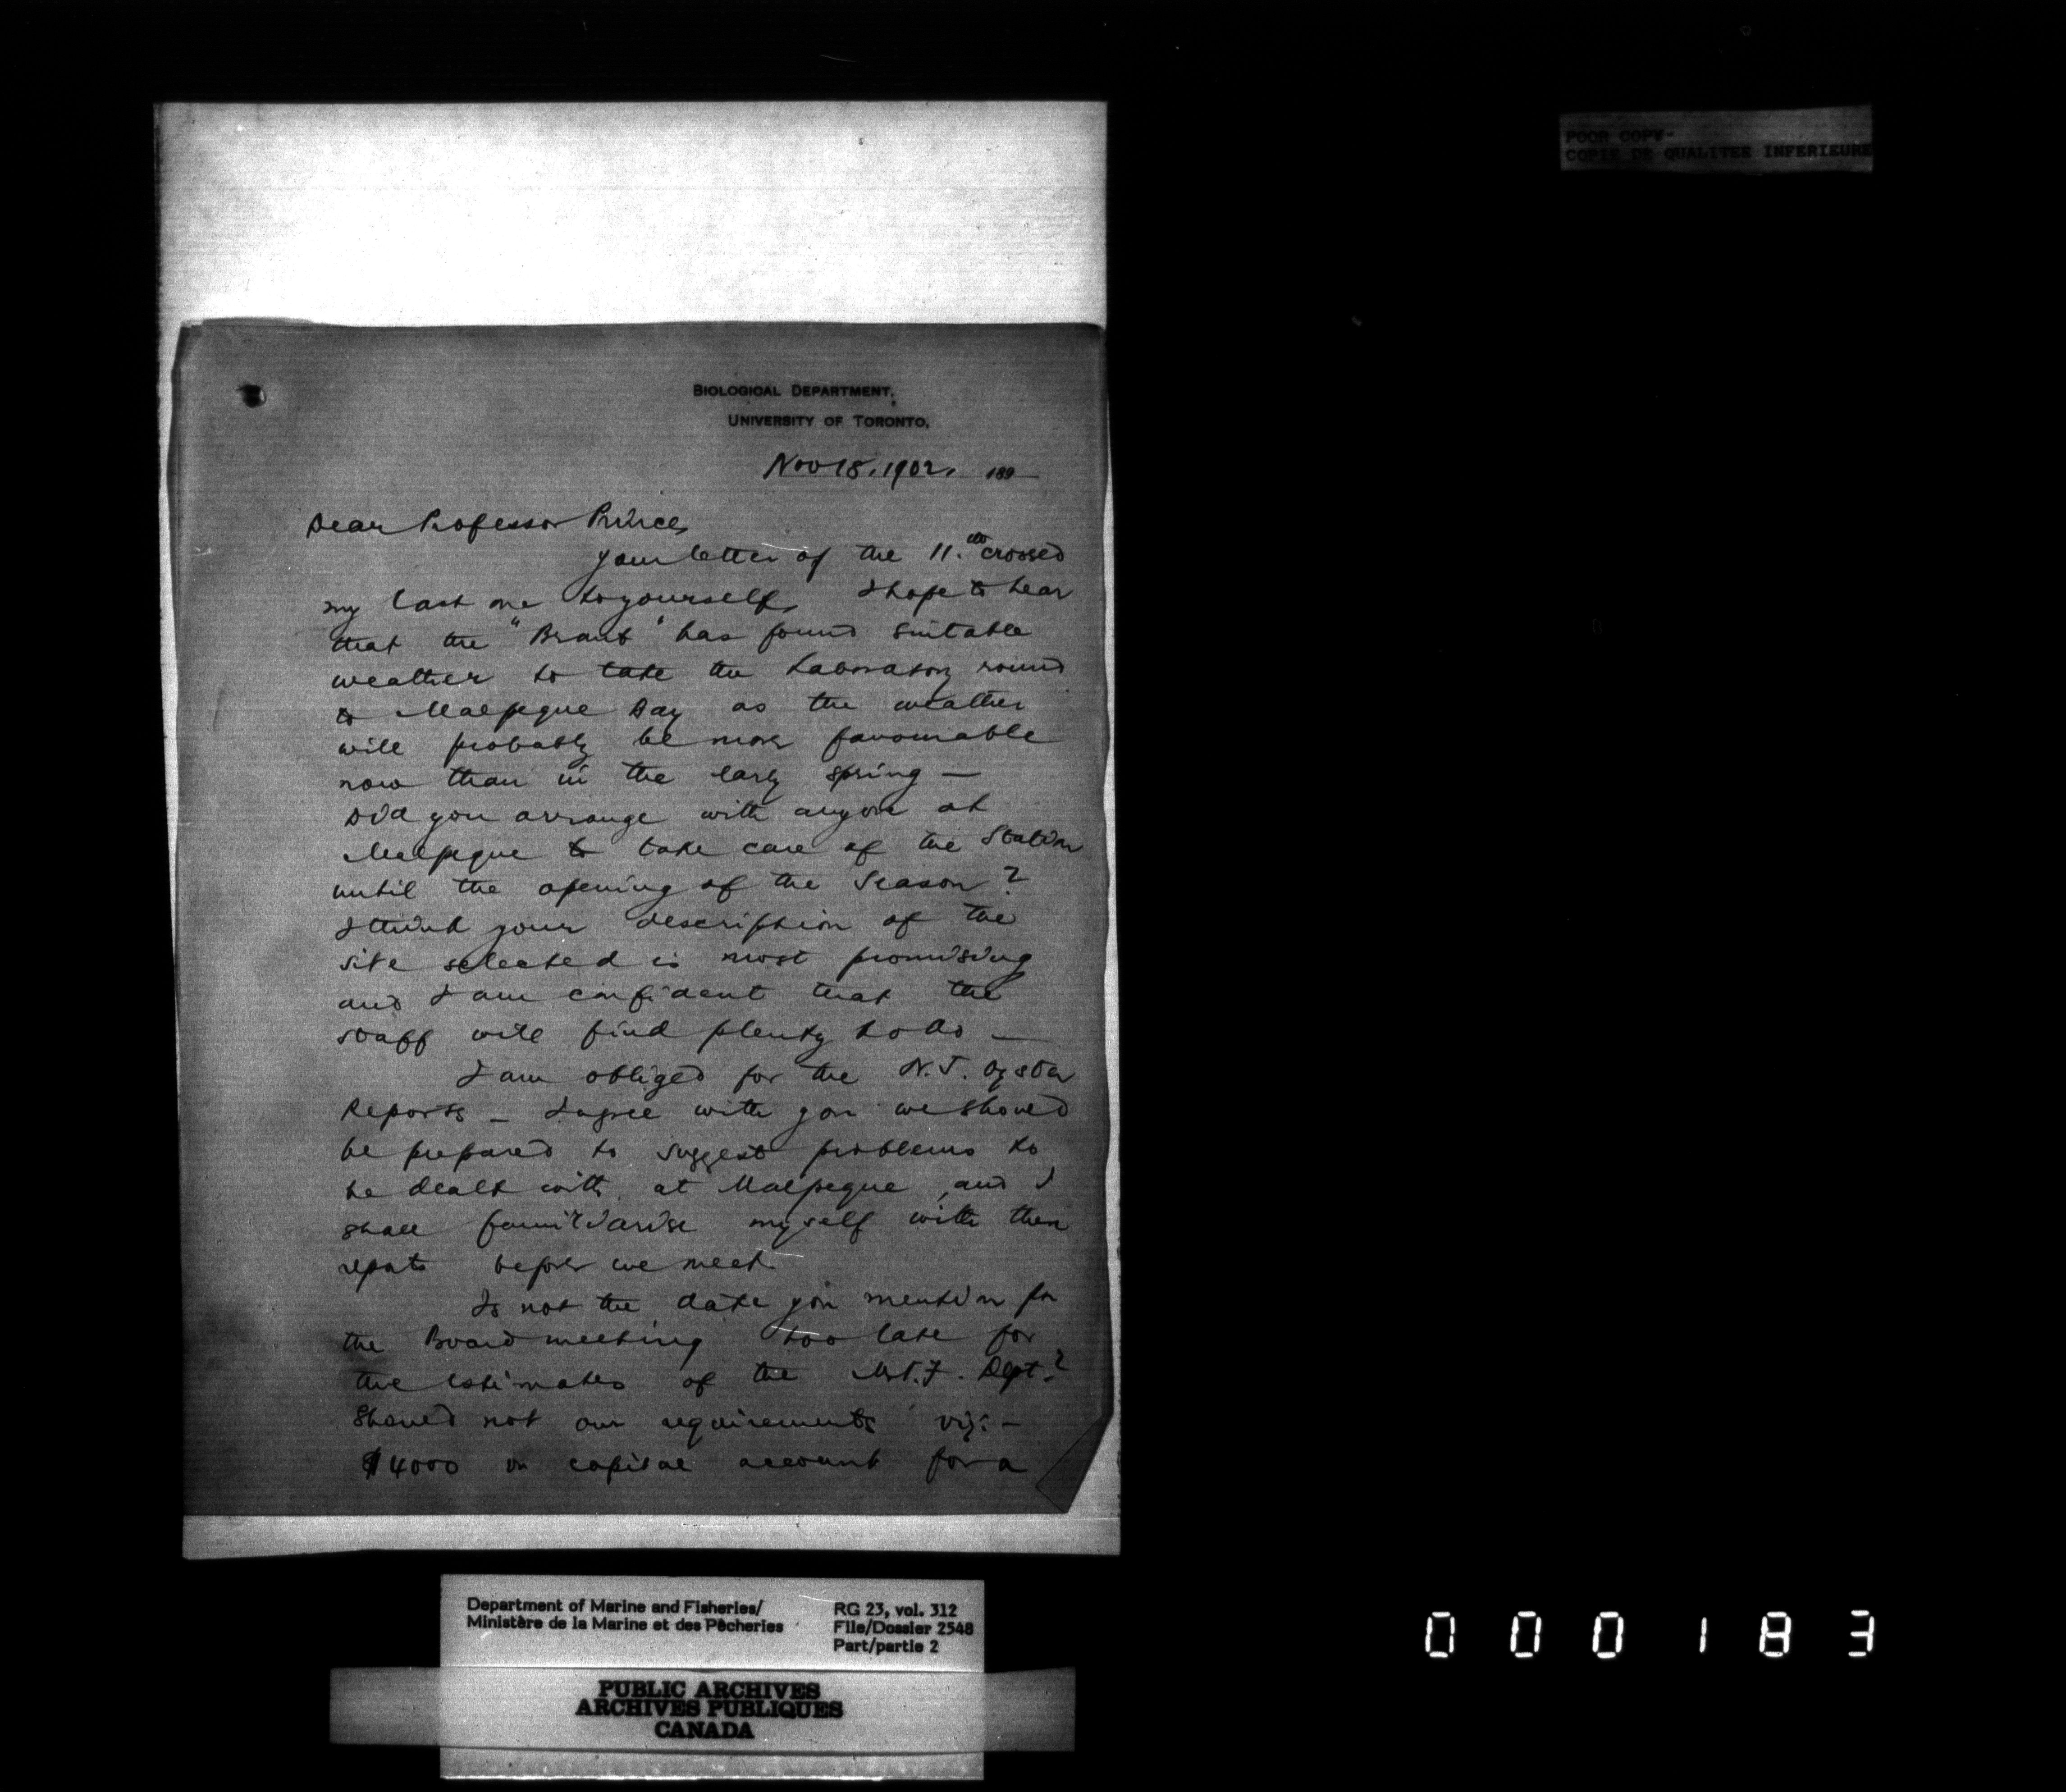 POOR COPY-
COPIE DE QUALITEE INFERIEURE
BIOLOGICAL DEPARTMENT,
UNIVERSITY OF TORONTO,
Nov 18. 1902. 189
Dear Professor Prince,
your letter of the 11.th crossed
my last one to yourself, I hope to hear
that the "Brant" has found suitable
weather to take the Laboratory round
to Malpeque Bay as the weather
will probably be more favourable
now than in the early spring —
Did you arrange with anyone at
Malpeque to take care of the Station
until the opening of the Season?
I think your description of the
site selected is most promising
and I am confident that the
staff will find plenty to do —
I am obliged for the N.J. Oyster
Reports — I agree with you we should
be prepared to suggest problems to
be dealt with at Malpeque, and I
shall familiarise myself with these
reports before we meet
Is not the date you mention for
the Board meeting too late for
the Estimates of the M.F. Dept.?
Should not our requirements viz: —
$4000 on capital account for a
Department of Marine and Fisheries/
Ministère de la Marine et des Pêcheries
RG 23, vol. 312
File/Dossier 2548
Part/partie 2
PUBLIC ARCHIVES
ARCHIVES PUBLIQUES
CANADA
000183